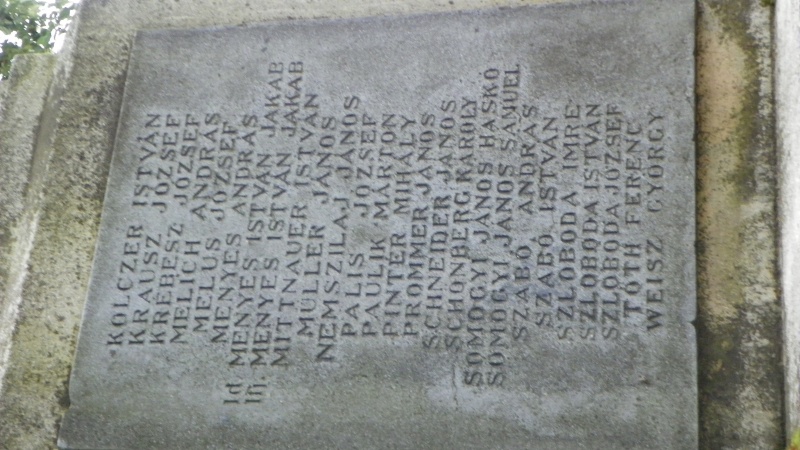 KOLCZER ISTVÁN
KRAUSZ JÓZSEF
KREBESZ JÓZSEF
MELICH ANDRÁS
MELUS JÓZSEF
MENYES ANDRÁS
Id. MENYES ISTVÁN JAKAB
Ifj. MENYES ISTVÁN JAKAB
MITTNAUER ISTVÁN
MÜLLER JÁNOS
NEMSZILAJ JÁNOS
PALIS JÓZSEF
PAULIK MÁRTON
PINTÉR MIHÁLY
PROMMER JÁNOS
SCHNEIDER JÁNOS
SCHÖNBERG KÁROLY
SOMOGYI JÁNOS HASKÓ
SOMOGYI JÁNOS SÁMUEL
SZABÓ ANDRÁS
SZABÓ ISTVÁN
SZLOBODA IMRE
SZLOBODA ISTVÁN
SZLOBODA JÓZSEF
TÓTH FERENC
WEISZ GYÖRGY